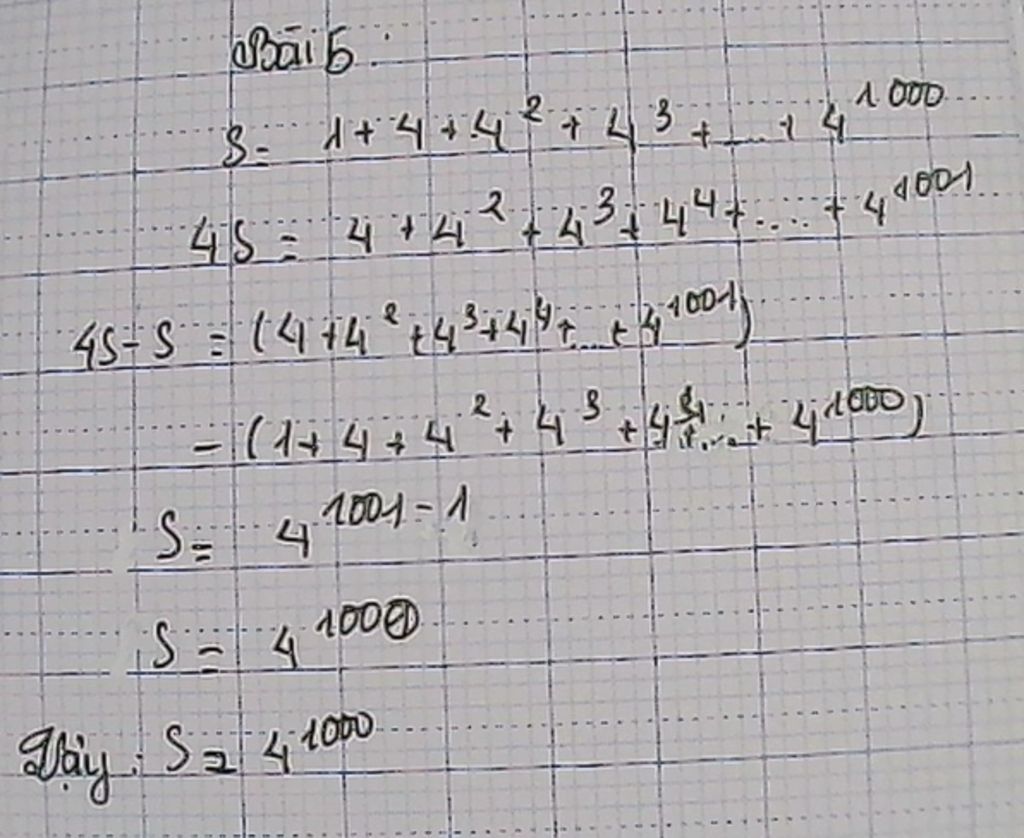 Bài 5:
S = 1 + 4 + 4² + 4³ + .... + 4¹⁰⁰⁰
4S = 4 + 4² + 4³ + 4⁴ + .... + 4¹⁰⁰¹
4S - S = (4 + 4² + 4³ + 4⁴ + ... + 4¹⁰⁰¹)
- (1 + 4 + 4² + 4³ + 4⁴ + .... + 4¹⁰⁰⁰)
S = 4¹⁰⁰¹⁻¹
S = 4¹⁰⁰⁰
Vậy: S = 4¹⁰⁰⁰